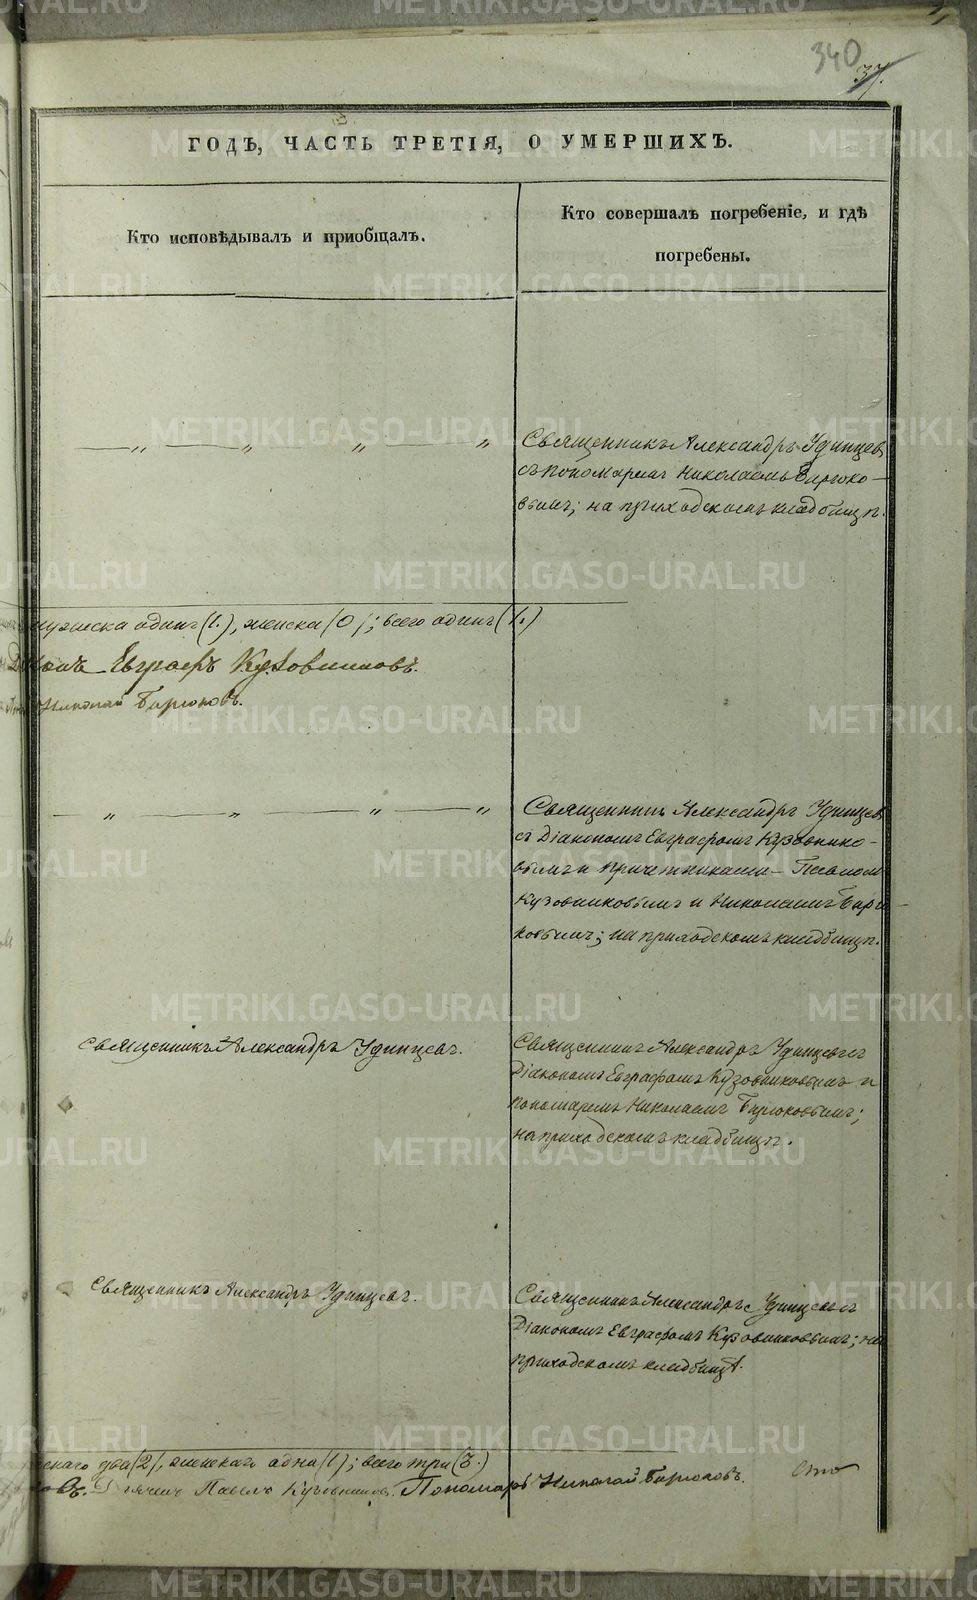 340
37.
ГОДЪ, ЧАСТЬ ТРЕТІЯ, О УМЕРШИХЪ.
Кто исповѣдывалъ и приобщалъ.
Кто совершалъ погребеніе, и гдѣ
погребены.
— „ — „ — „ — „
Священникъ Александръ Удинцев
съ пономаремъ Николаемъ Бирюко-
вымъ; на приходскомъ кладбищѣ.
мужеска одинъ (1.), женска (0); всего одинъ (1.)
Евграфъ Кузовниковъ.
Николай Бирюковъ.
— „ — „ — „ — „
Священникъ Александръ Удинцев
съ Діакономъ Евграфомъ Кузовнико-
вымъ и причетниками — Павломъ
Кузовниковымъ и Николаемъ Бирю-
ковымъ; на приходскомъ кладбищѣ.
Священникъ Александръ Удинцевъ.
Священникъ Александръ Удинцевъ съ
Діакономъ Евграфомъ Кузовниковымъ и
пономаремъ Николаемъ Бирюковымъ;
на приходскомъ кладбищѣ.
Священникъ Александръ Удинцевъ.
Священникъ Александръ Удинцевъ съ
Діакономъ Евграфомъ Кузовниковымъ; на
приходскомъ кладбищѣ.
два (2), женскаго одна (1); всего три (3.)
Дьячекъ Павелъ Кузовниковъ. Пономарь Николай Бирюковъ.
METRIKI.GASO-URAL.RU